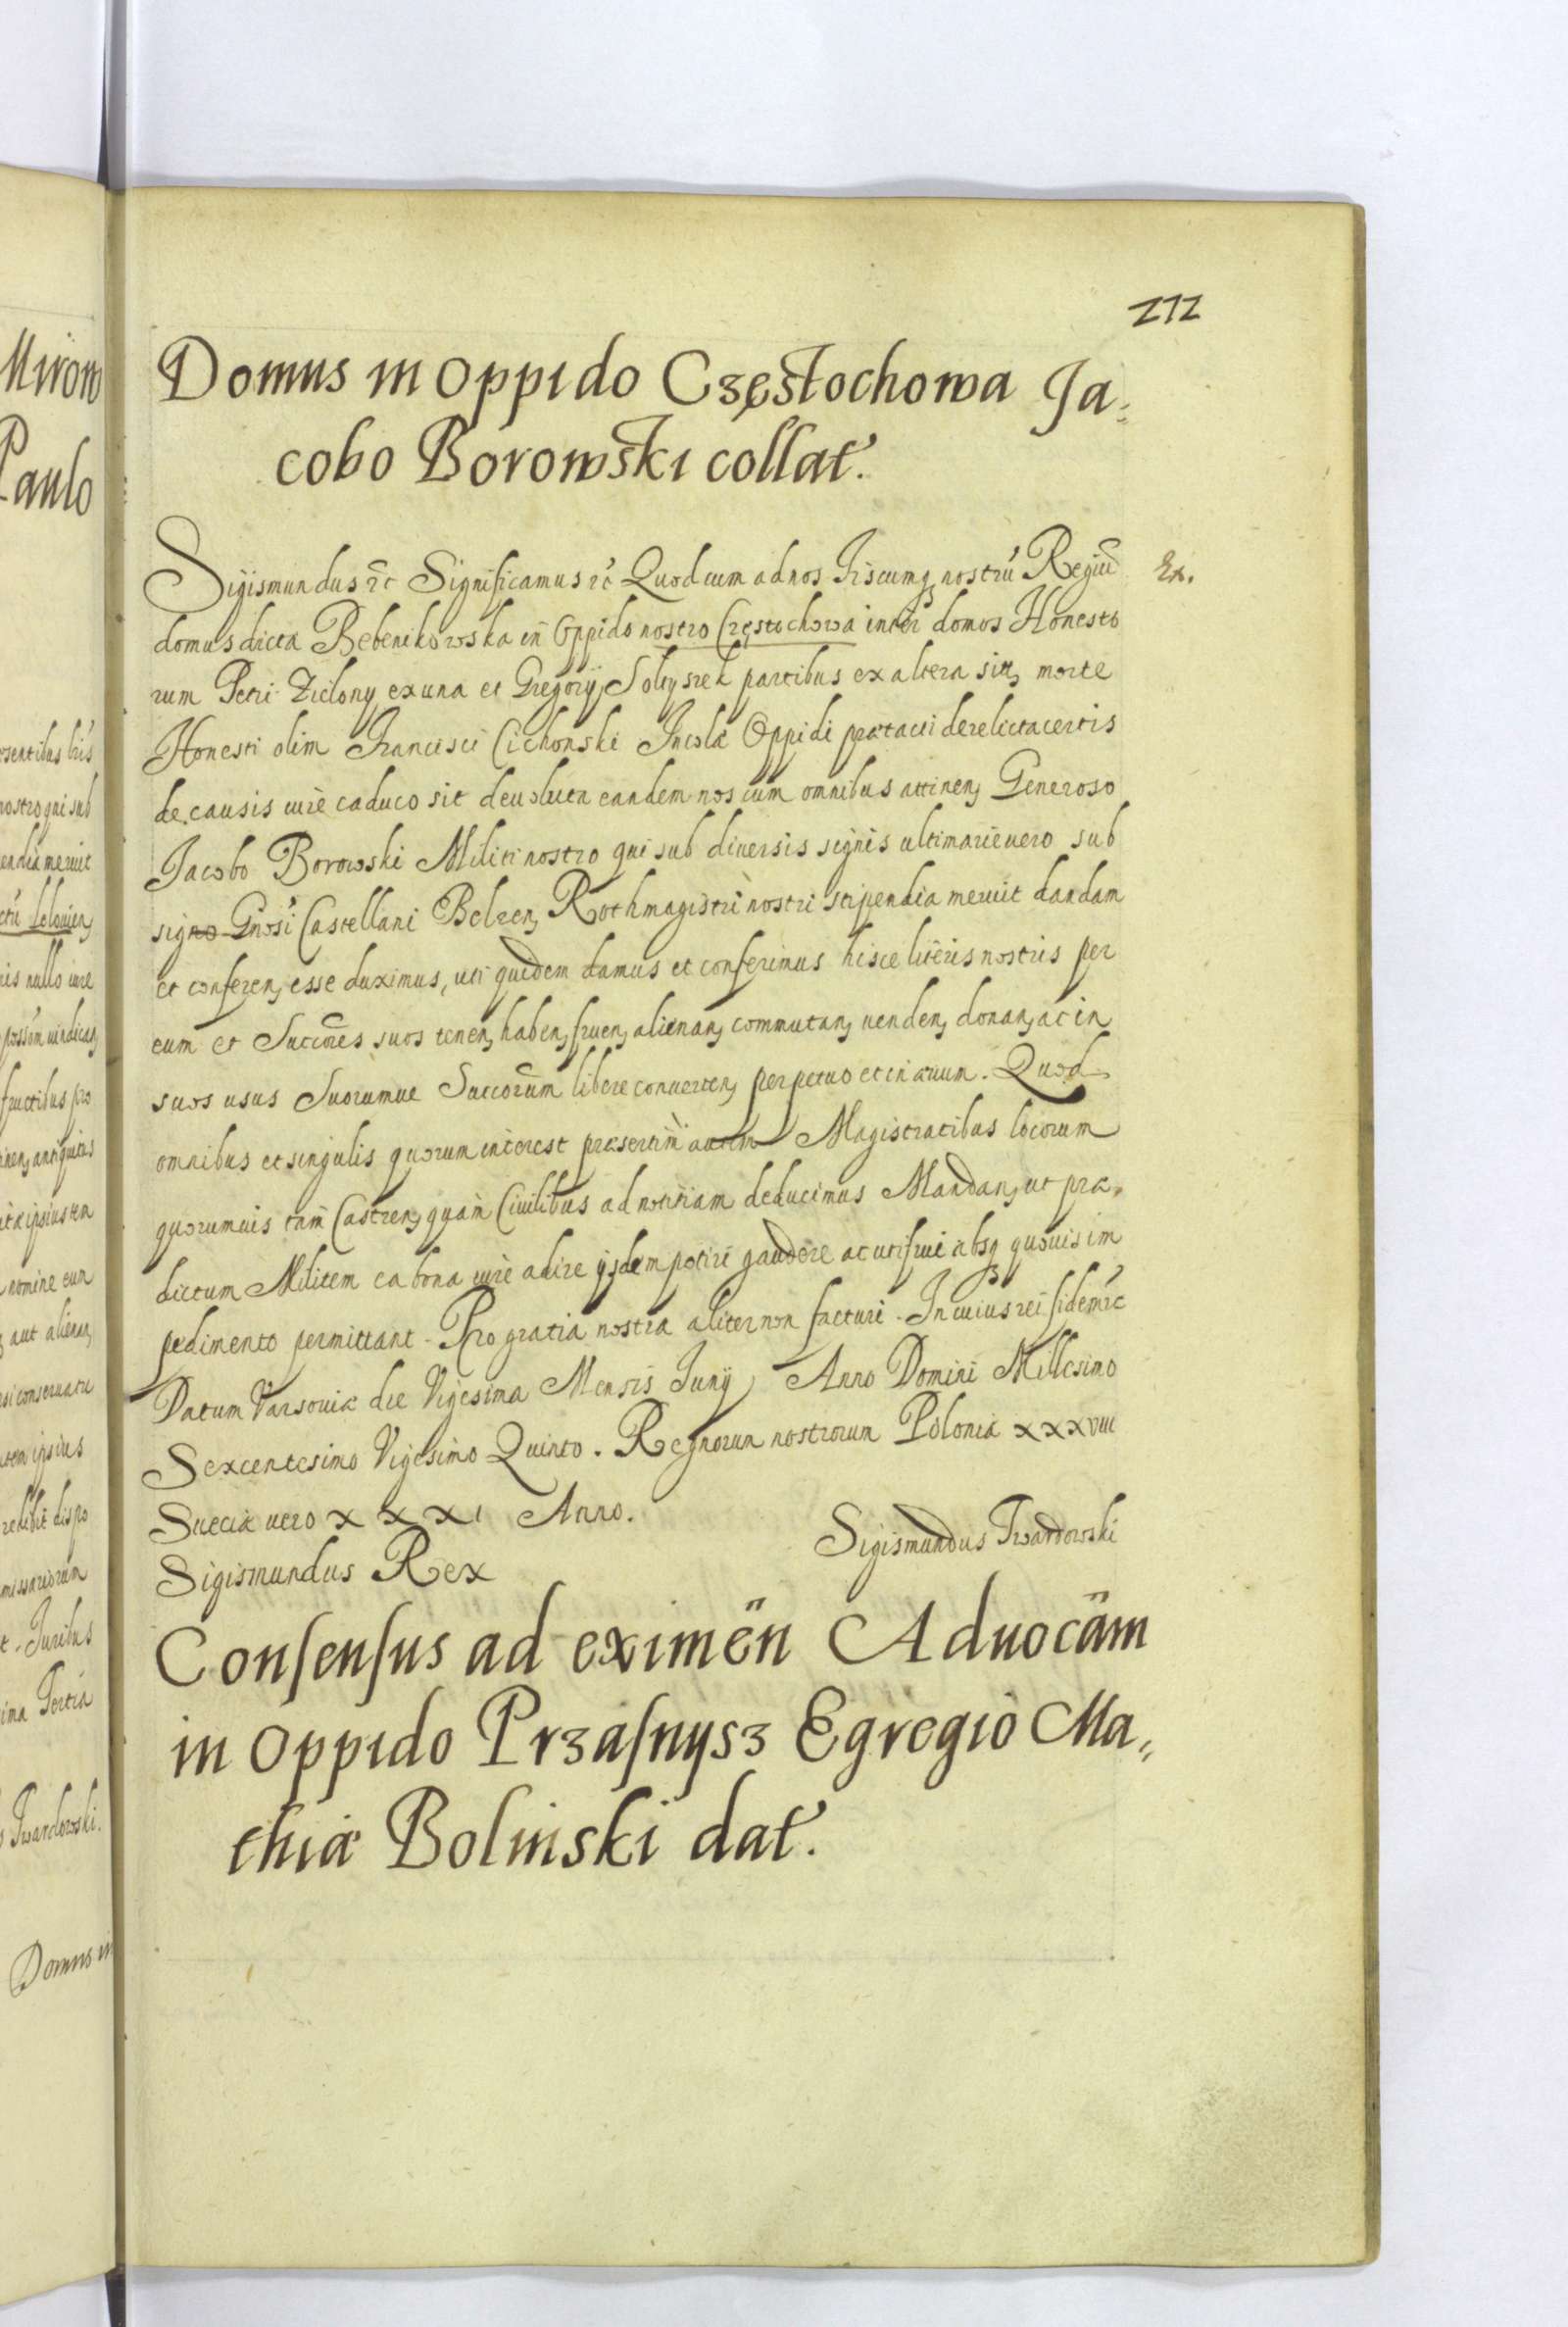 212
Domus in oppido Częstochowa Ja-
cobo Borowski collat.
Sigismundus etc Significamus etc Quod cum ad nos Fiscumq nostrū Regiū
Ex.
domus dicta Bebenikowska in Oppido nostro Częstochowa inter domos Honesto
rum Petri Zielony ex una et Gregorij Soltyszek partibus ex altera sitę morte
Honesti olim Francisci Cichonski Incolæ Oppidi prætacti derelicta certis
de causis iure caduco sit deuoluta eandem nos cum omnibus attinen, Generoso
Jacobo Borowski Militi nostro qui sub diuersis signis ultimarie uero sub
signo Gnosi Castellani Belzen, Rothmagistri nostri stipendia meruit dandam
et conferen, esse duximus, uti quidem damus et conferimus hisce literis nostris per
eum et Succōres suos tenen, haben, fruen, alienan, commutan, uenden, donan, ac in
suos usus Suorumue Succorūm libere conuerten, perpetuo et in æuum. Quod
omnibus et singulis quorum interest præsertim autem Magistratibus locorum
quorumuis tam Castren, quam Ciuilibus ad notitiam deducimus Mandan, ut præ-
dictum Militem ea bona iure adire ijsdem potiri gaudere ac uti frui absq quouis im
pedimento permittant. Pro gratia nostra aliter non facturi. In cuius rei fidem etc
Datum Varsouiæ die Vigesima Mensis Junij Anno Domini Millesimo
Sexcentesimo Vigesimo Quinto. Regnorum nostrorum Poloniæ xxxviii
Sueciæ uero xxxi Anno.
Sigismundus Rex
Sigismundus Twardowski
Consensus ad eximen̄ Aduocām
in oppido Przasnysz Egregio Ma-
thiæ Bolinski dat.